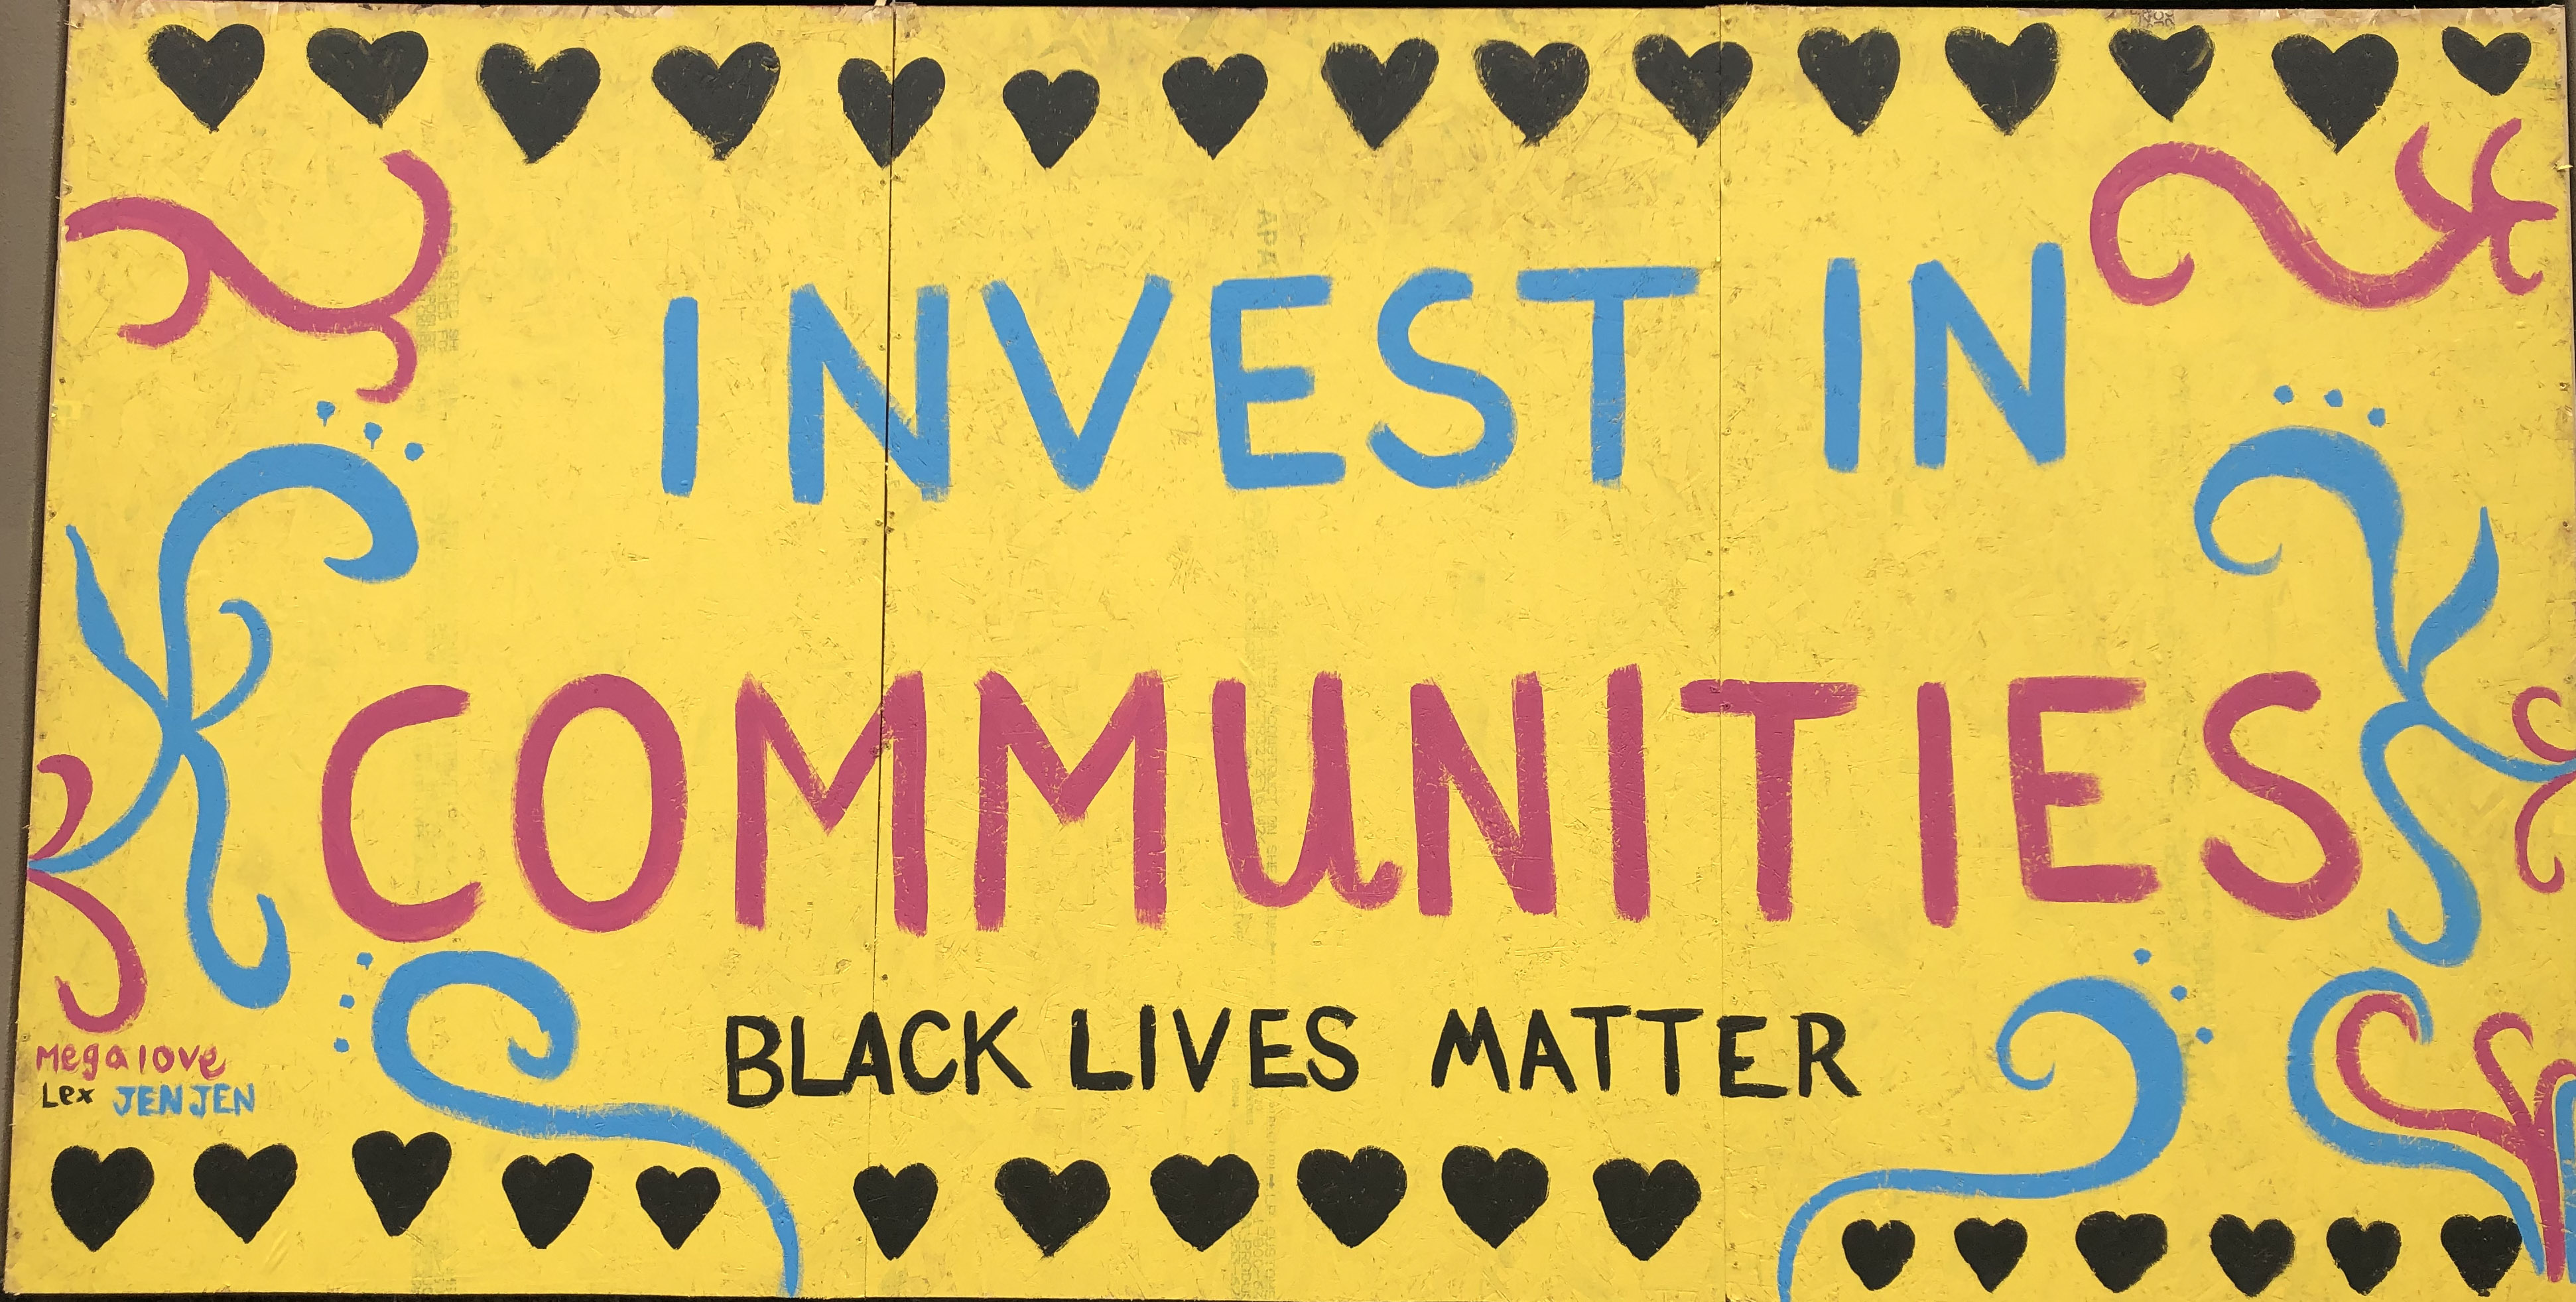 INVEST IN
COMMUNITIES
BLACK LIVES MATTER
Megalove
Lex JENJEN